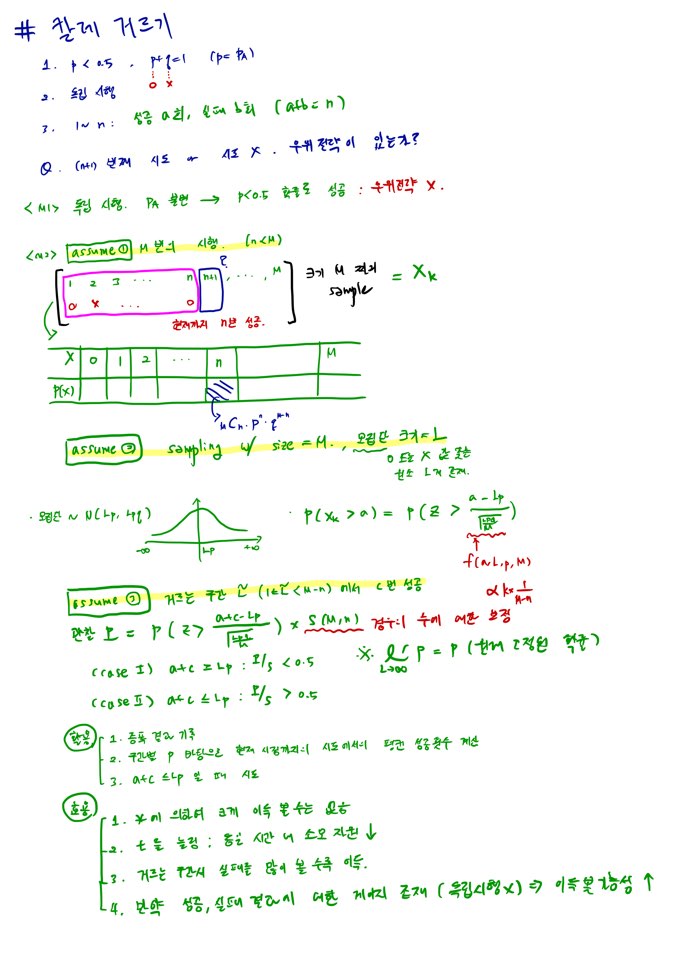 # 칼제 거르기
1. p < 0.5 , p+q=1 (p = P_A)
o x
2. 독립 시행
3. 1~n : 성공 a회, 실패 b회 (a+b=n)
Q. (n+1) 번째 시도 or 시도 X. 우위 전략이 있는가?
<M1> 독립 시행. P_A 불변 → p<0.5 확률로 성공 : 우위전략 X.
assume ① M 번의 시행. (n<M)
?
1 2 3 ... n n+1 , ..., M
o x ... o
크기 M 짜리 sample = X_k
현재까지 n번 성공.
X 0 1 2 ... n M
P(X)
_M C_n · p^n · q^{M-n}
assume ② sampling w/ size = M., 모집단 크기 = L
o 또는 x 값 갖는
원소 L개 존재.
· 모집단 ~ N(Lp, Lpq)
-∞ Lp +∞
· P(X_k > a) = P(Z > a-Lp
f(a, L, p, M)
assume ③ 거르는 구간 (1≤ <M-n) 에서 c번 성공
관찰 P = P(Z > a+c-Lp ) × S(M,n) 경우의 수에 의한 보정
(case I) a+c ≥ Lp : I/s < 0.5
(case II) a+c ≤ Lp : I/s > 0.5
※ lim L→∞ P = P (현재 확률)
활용
1. 증폭 결과 기록
2. 구간별 P 바탕으로 현재 시점까지의 시도에서의 평균 성공횟수 계산
3. a+c ≤ Lp 일 때 시도
효용
1. 에 의하여 크게 이득 볼 수는 없음
2. t을 늘림 ; 동일 시간 내 소모 자원 ↓
3. 거르는 구간서 실패를 많이 볼 수록 이득.
4. 만약 성공, 실패 결과에 대한 제어지 존재 (독립시행X) ⇒ 이득 볼 가능성 ↑